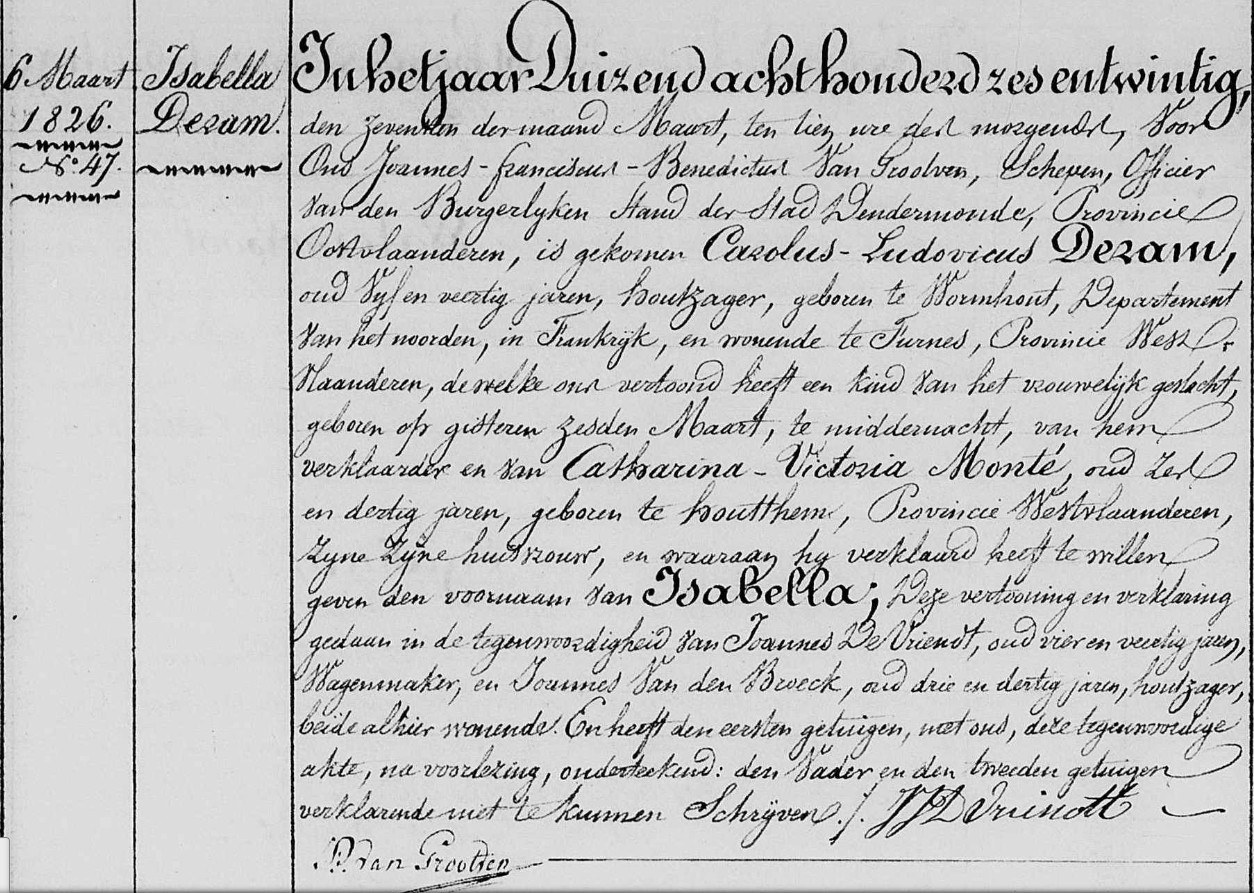 6 Maart
1826.
N.o 47.
Isabella
Dezam.
In het jaar Duizend acht honderd zes en twintig,
den zevensten der maand Maart, ten tien ure des morgends, Voor
Ons Joannes-Franciscus-Benedictus Van Grootven, Schepen, Officier
van den Burgerlyken Stand der Stad Dendermonde, Provincie
Oostvlaanderen, is gekomen Carolus-Ludovicus Dezam,
oud Vyf en veertig jaren, houtzager, geboren te Wormhout, Departement
van het noorden, in Frankrijk, en wonende te Furnes, Provincie West-
Vlaanderen, dewelke ons vertoond heeft een kind van het vrouwelijk geslacht,
geboren op gisteren zesden Maart, te middernacht, van hem
verklaarder en van Catharina-Victoria Monté, oud zes
en dertig jaren, geboren te houtthem, Provincie Westvlaanderen,
Zyne Zyne huisvrouw, en waaraan hy verklaard heeft te willen
geven den voornaam van Isabella; Deze vertooning en verklaring
gedaan in de tegenwoordigheid van Joannes De Vriendt, oud vier en veertig jaren,
Wagenmaker, en Joannes Van den Broeck, oud drie en dertig jaren, houtzager,
beide alhier wonende. En heeft den eersten getuigen, met ons, deze tegenwoordige
akte, na voorlezing, onderteekend: den Vader en den tweeden getuigen
verklarende niet te kunnen Schrijven./.
Van Grootven